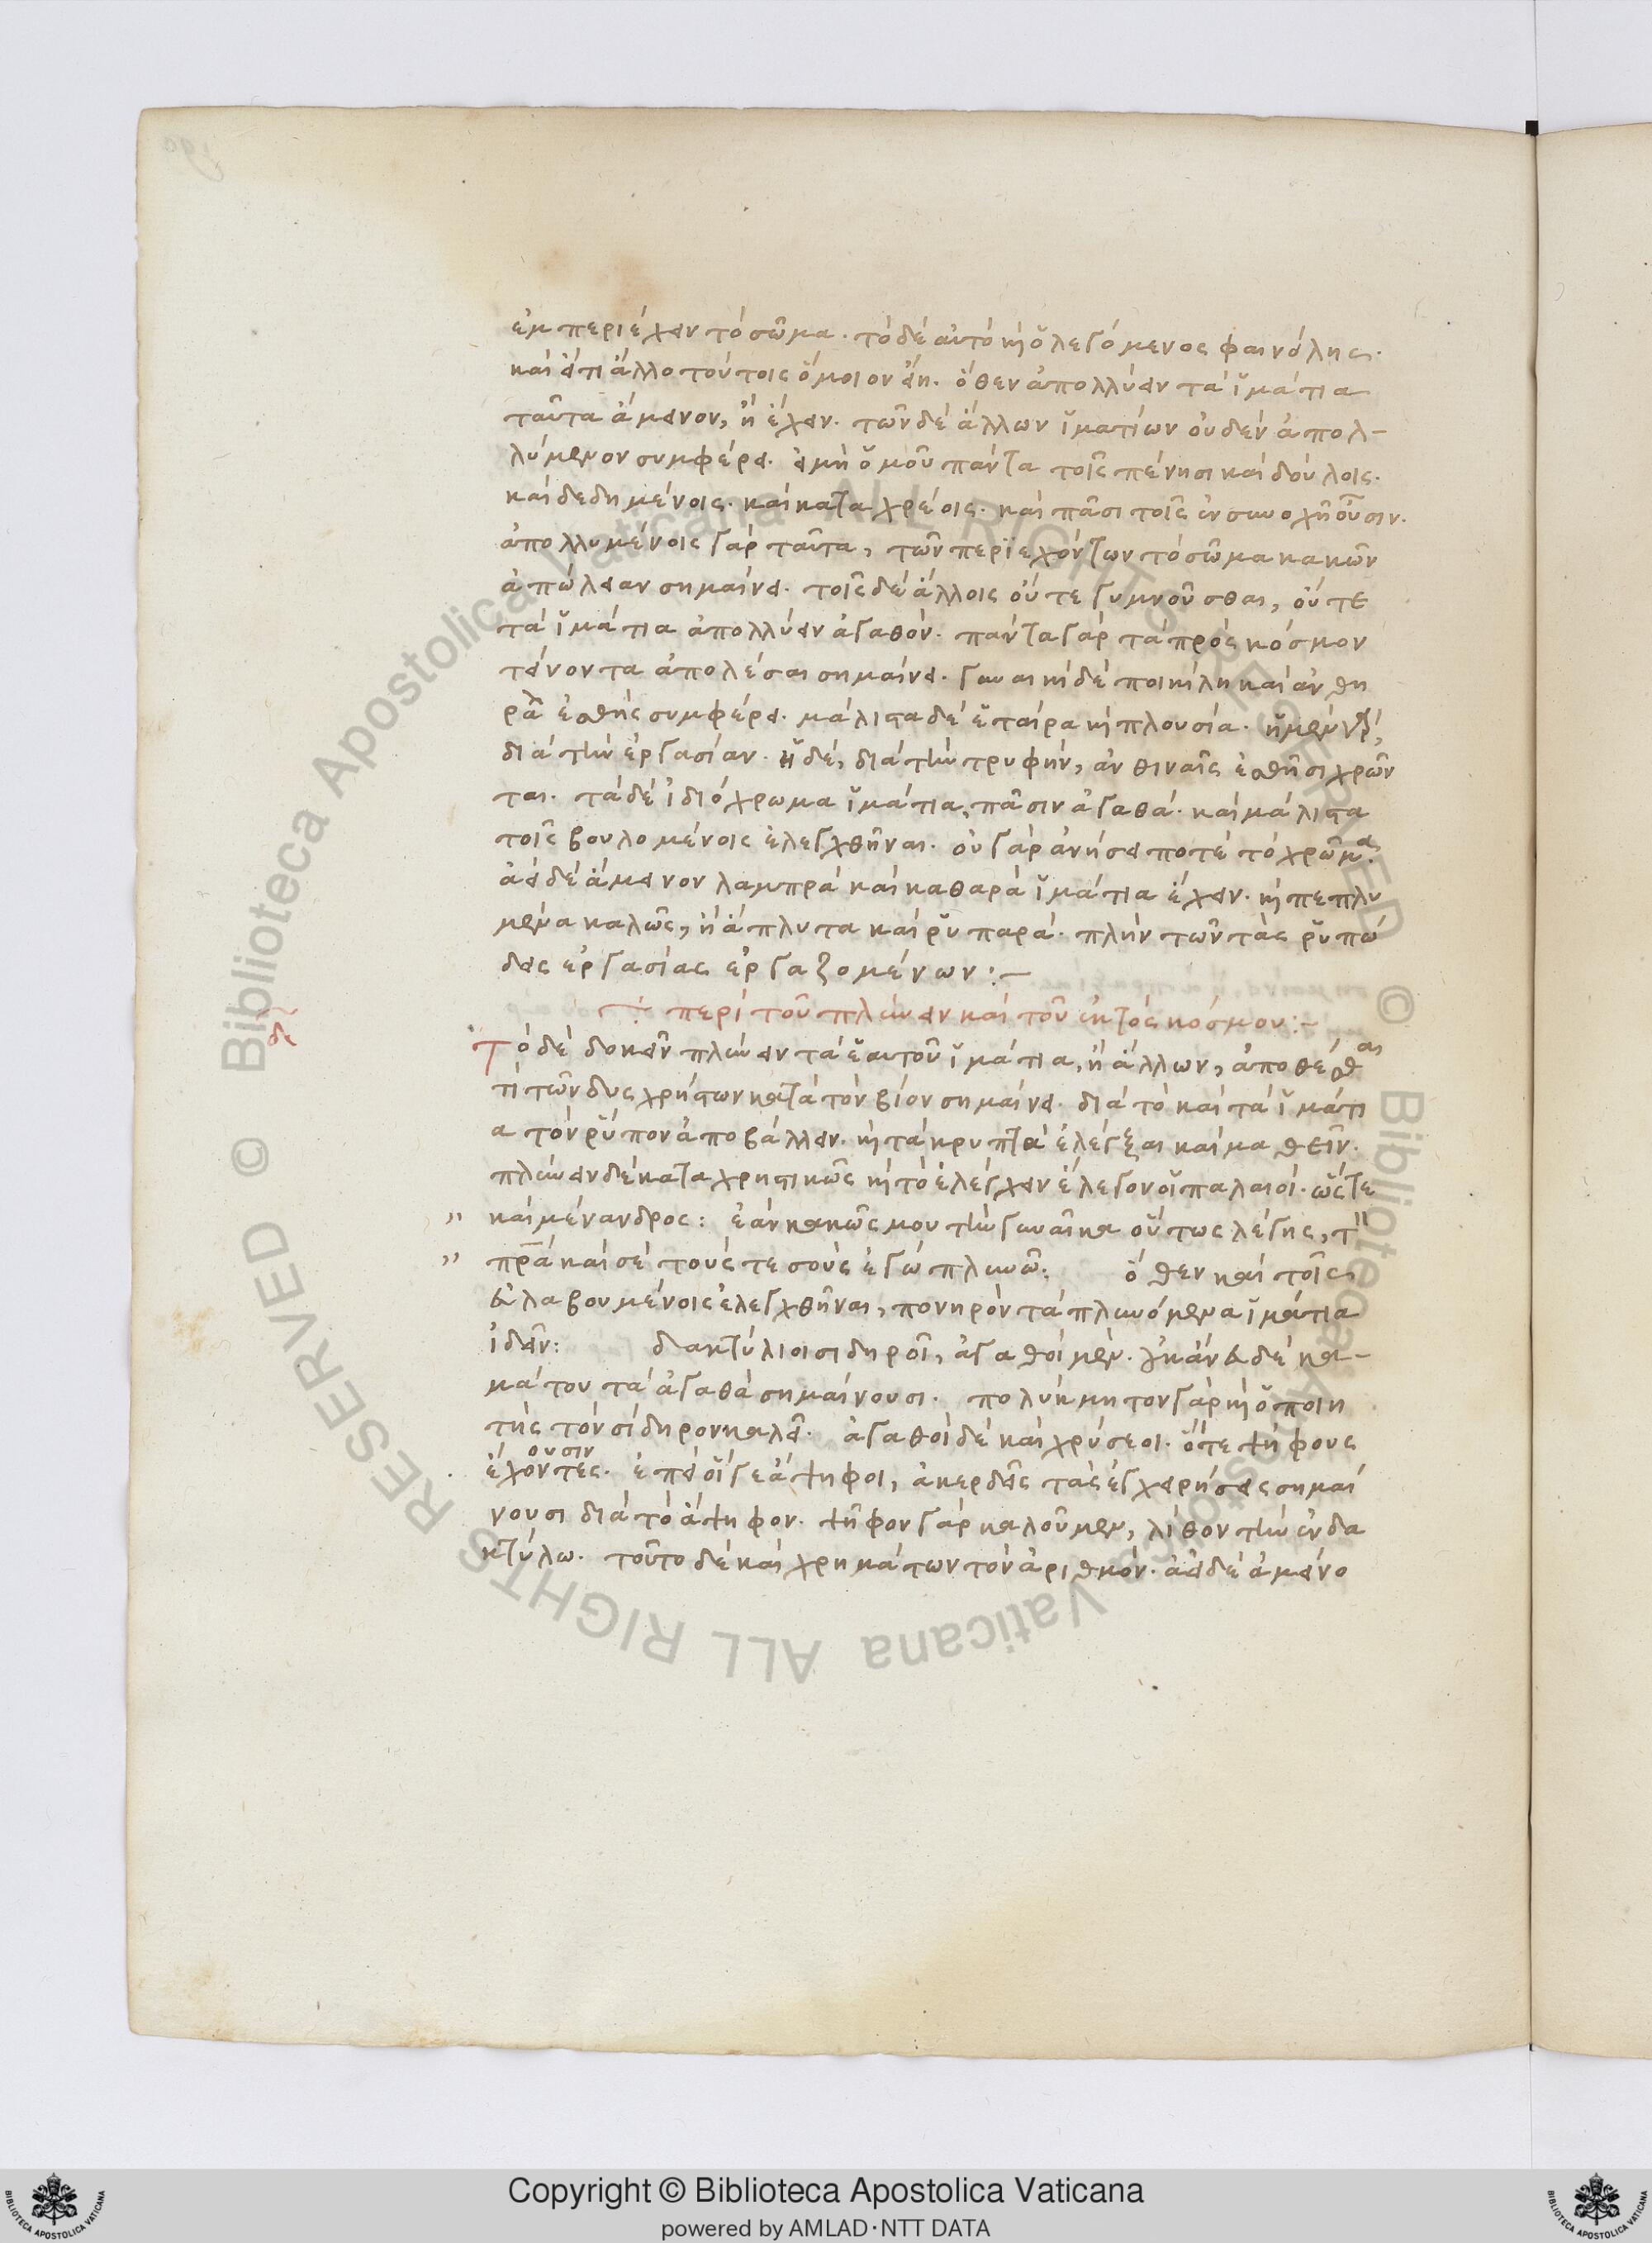 ἐμπεριέχειν τὸ σῶμα. τὸ δὲ αὐτὸ καὶ ὁ λεγόμενος φαινόλης.
καὶ εἴ τι ἄλλο τούτοις ὅμοιον εἴη. ὅθεν ἀπολλύειν τὰ ἱμάτια
ταῦτα ἄμεινον, ἢ ἔχειν. τῶν δὲ ἄλλων ἱματίων οὐδὲν ἀπολ-
λύμενον συμφέρει. εἰ μὴ ὁμοῦ πάντα τοῖς πένησι καὶ δούλοις.
καὶ δεδημένοις. καὶ καταχρέοις. καὶ πᾶσι τοῖς ἐν συνοχῇ οὖσιν.
ἀπολλυμένοις γὰρ ταῦτα, τῶν περιεχόντων τὸ σῶμα κακῶν
ἀπώλειαν σημαίνει. τοῖς δὲ ἄλλοις οὔτε γυμνοῦσθαι, οὔτε
τὰ ἱμάτια ἀπολλύειν ἀγαθόν. πάντα γὰρ τὰ πρὸς κόσμον
τείνοντα ἀπολέσαι σημαίνει. γυναικὶ δὲ ποικίλη καὶ ἀνθη
ρὰ ἐσθὴς συμφέρει. μάλιστα δὲ ἑταίρα καὶ πλουσία. ἡ μὲν γὰρ,
διὰ τὴν ἐργασίαν. ἡ δὲ, διὰ τὴν τρυφήν, ἀνθιναῖς ἐσθῆσι χρῶν
ται. τὰ δὲ ἰδιόχρωμα ἱμάτια, πᾶσιν ἀγαθά. καὶ μάλιστα
τοῖς βουλομένοις ἐλεγχθῆναι. οὐ γὰρ ἀνήσει ποτὲ τὸ χρῶμα.
ἀεὶ δὲ ἄμεινον λαμπρὰ καὶ καθαρὰ ἱμάτια ἔχειν. καὶ πεπλυ
μένα καλῶς, ἢ ἄπλυτα καὶ ῥυπαρά. πλὴν τῶν τὰς ῥυπώ
δεις ἐργασίας ἐργαζομένων:–
περὶ τοῦ πλύνειν καὶ τοῦ ἐκτὸς κόσμου:–
Τὸ δὲ δοκεῖν πλύνειν τὰ ἑαυτοῦ ἱμάτια, ἢ ἄλλων, ἀποθέσθαι
τὶ τῶν δυσχρήστων κατὰ τὸν βίον σημαίνει. διὰ τὸ καὶ τὰ ἱμάτι
α τὸν ῥύπον ἀποβάλλειν. καὶ τὰ κρυπτὰ ἐλέγξαι καὶ μαθεῖν.
πλύνειν δὲ καταχρηστικῶς καὶ τὸ ἐλέγχειν ἔλεγον οἱ παλαιοί. ὥστε
" καὶ μένανδρος: ἐὰν κακῶς μου τὴν γυναῖκα οὕτως λέγης, τὸν
" πρα καὶ σὲ τούς τε σοὺς ἐγὼ πλυνῶ: ὅθεν καὶ τοῖς
εὐλαβουμένοις ἐλεγχθῆναι, πονηρὸν τὰ πλυνόμενα ἱμάτια
ἰδεῖν: δακτύλιοι σιδηροῖ, ἀγαθοὶ μὲν. οὐκ ἄνευ δὲ κα-
μάτου τὰ ἀγαθὰ σημαίνουσι. πολύκμητον γὰρ καὶ ὁ ποιη
τὴς τὸν σίδηρον καλεῖ. ἀγαθοὶ δὲ καὶ χρύσεοι. ὅτε ψήφους
ἔχουσιν
ἔχοντες. ἐπεὶ οἵγε ἄψηφοι, ἀκερδεῖς τὰς ἐγχειρήσεις σημαί
νουσι διὰ τὸ ἄψηφον. ψῆφον γὰρ καλοῦμεν, λίθον τὴν ἐν δα
κτύλω. τοῦτο δὲ καὶ χρημάτων τὸν ἀριθμόν. ἀεὶ δὲ ἀμείνο
Copyright © Biblioteca Apostolica Vaticana
powered by AMLAD·NTT DATA
© Biblioteca Apostolica Vaticana ALL RIGHTS RESERVED
© Biblioteca Apostolica Vaticana ALL RIGHTS RESERVED